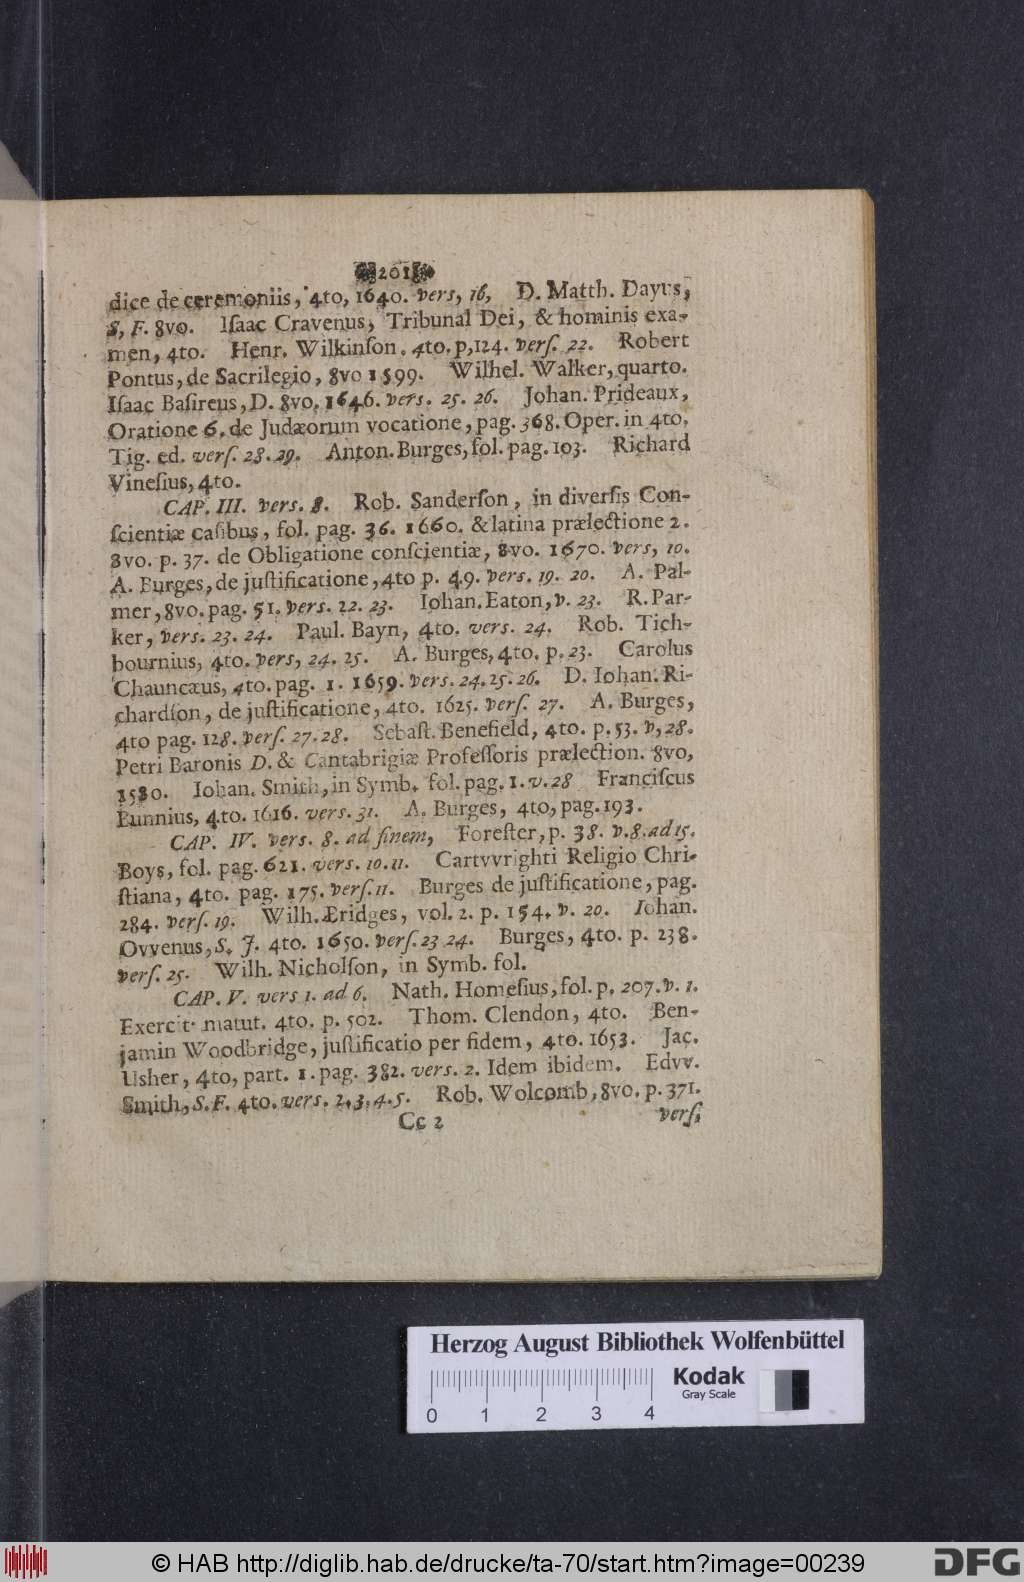 201
dice de ceremoniis, 4to, 1640. vers, 16, D. Matth. Dayus,
S, F. 8vo. Iſaac Cravenus, Tribunal Dei, & hominis exa-
men, 4to. Henr. Wilkinſon. 4to. p,124. verſ. 22. Robert
Pontus, de Sacrilegio, 8vo 1599. Wilhel. Walker, quarto.
Iſaac Baſireus, D. 8vo. 1646. vers. 25. 26. Johan. Prideaux,
Oratione 6. de Judæorum vocatione, pag. 368. Oper. in 4to,
Tig. ed. verſ. 28. 29. Anton. Burges, fol. pag. 103. Richard
Vineſius, 4to.
CAP. III. vers. 8. Rob. Sanderſon, in diverſis Con-
ſcientiæ caſibus, fol. pag. 36. 1660. & latina prælectione 2.
8vo. p. 37. de Obligatione conſcientiæ, 8vo. 1670. vers, 10.
A. Burges, de juſtificatione, 4to p. 49. vers. 19. 20. A. Pal-
mer, 8vo. pag. 51. vers. 22. 23. Iohan. Eaton, v. 23. R. Par-
ker, vers. 23. 24. Paul. Bayn, 4to. vers. 24. Rob. Tich-
bournius, 4to. vers, 24. 25. A. Burges, 4to. p. 23. Carolus
Chauncæus, 4to. pag. 1. 1659. vers. 24. 25. 26. D. Iohan. Ri-
chardſon, de juſtificatione, 4to. 1625. verſ. 27. A. Burges,
4to pag. 128. verſ. 27. 28. Sebaſt. Benefield, 4to. p. 53. v, 28.
Petri Baronis D. & Cantabrigiæ Profeſſoris prælection. 8vo,
1580. Iohan. Smith, in Symb. fol. pag. 1. v. 28 Franciſcus
Bunnius, 4to. 1616. vers. 31. A. Burges, 4to, pag. 193.
CAP. IV. vers. 8. ad finem, Foreſter, p. 38. v. 8. ad 15.
Boys, fol. pag. 621. vers. 10. 11. Cartvvrighti Religio Chri-
ſtiana, 4to. pag. 175. verſ. 11. Burges de juſtificatione, pag.
284. verſ. 19. Wilh. Bridges, vol. 2. p. 154. v. 20. Iohan.
Ovvenus, S. J. 4to. 1650. verſ. 23 24. Burges, 4to. p. 238.
verſ. 25. Wilh. Nicholſon, in Symb. fol.
CAP. V. vers 1. ad 6. Nath. Homeſius, fol. p. 207. v. 1.
Exercit. matut. 4to. p. 502. Thom. Clendon, 4to. Ben-
jamin Woodbridge, juſtificatio per fidem, 4to. 1653. Jac.
Usher, 4to, part. 1. pag. 382. vers. 2. Idem ibidem. Edvv.
Smith, S. F. 4to. vers. 2. 3. 4. 5. Rob. Wolcomb, 8vo. p. 371.
Cc 2 verſ,
Herzog August Bibliothek Wolfenbüttel
Kodak
Gray Scale
0 1 2 3 4
© HAB http://diglib.hab.de/drucke/ta-70/start.htm?image=00239
DFG